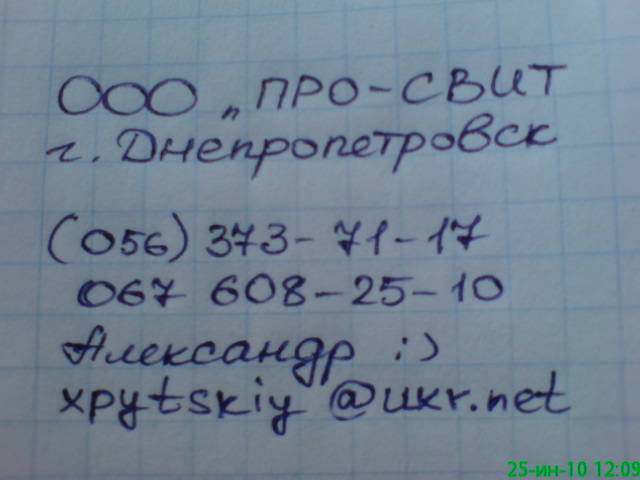 ООО „ПРО-СВИТ
г. Днепропетровск
(056) 373-71-17
067 608-25-10
Александр :)
xpytskiy @ukr.net
25-ин-10 12:09